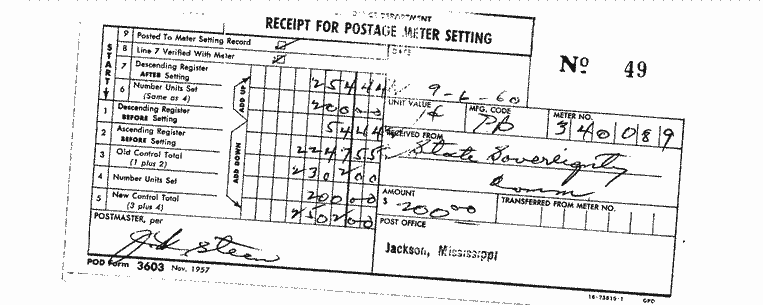 POST OFFICE DEPARTMENT
RECEIPT FOR POSTAGE METER SETTING
Nº 49
START
9 Posted To Meter Setting Record
8 Line 7 Verified With Meter
7 Descending Register AFTER Setting 25444
6 Number Units Set (Same as 4) 20000
1 Descending Register BEFORE Setting 5444
2 Ascending Register BEFORE Setting 224755
3 Old Control Total (1 plus 2) 230200
4 Number Units Set 20000
5 New Control Total (3 plus 4) 250200
ADD UP
ADD DOWN
DATE
9-6-60
UNIT VALUE 1¢
MFG. CODE PB
METER NO. 340089
RECEIVED FROM
State Sovereignty
Comm
AMOUNT
$ 200.00
TRANSFERRED FROM METER NO.
POST OFFICE
Jackson, Mississippi
POSTMASTER, per
POD Form 3603 Nov. 1957
GPO